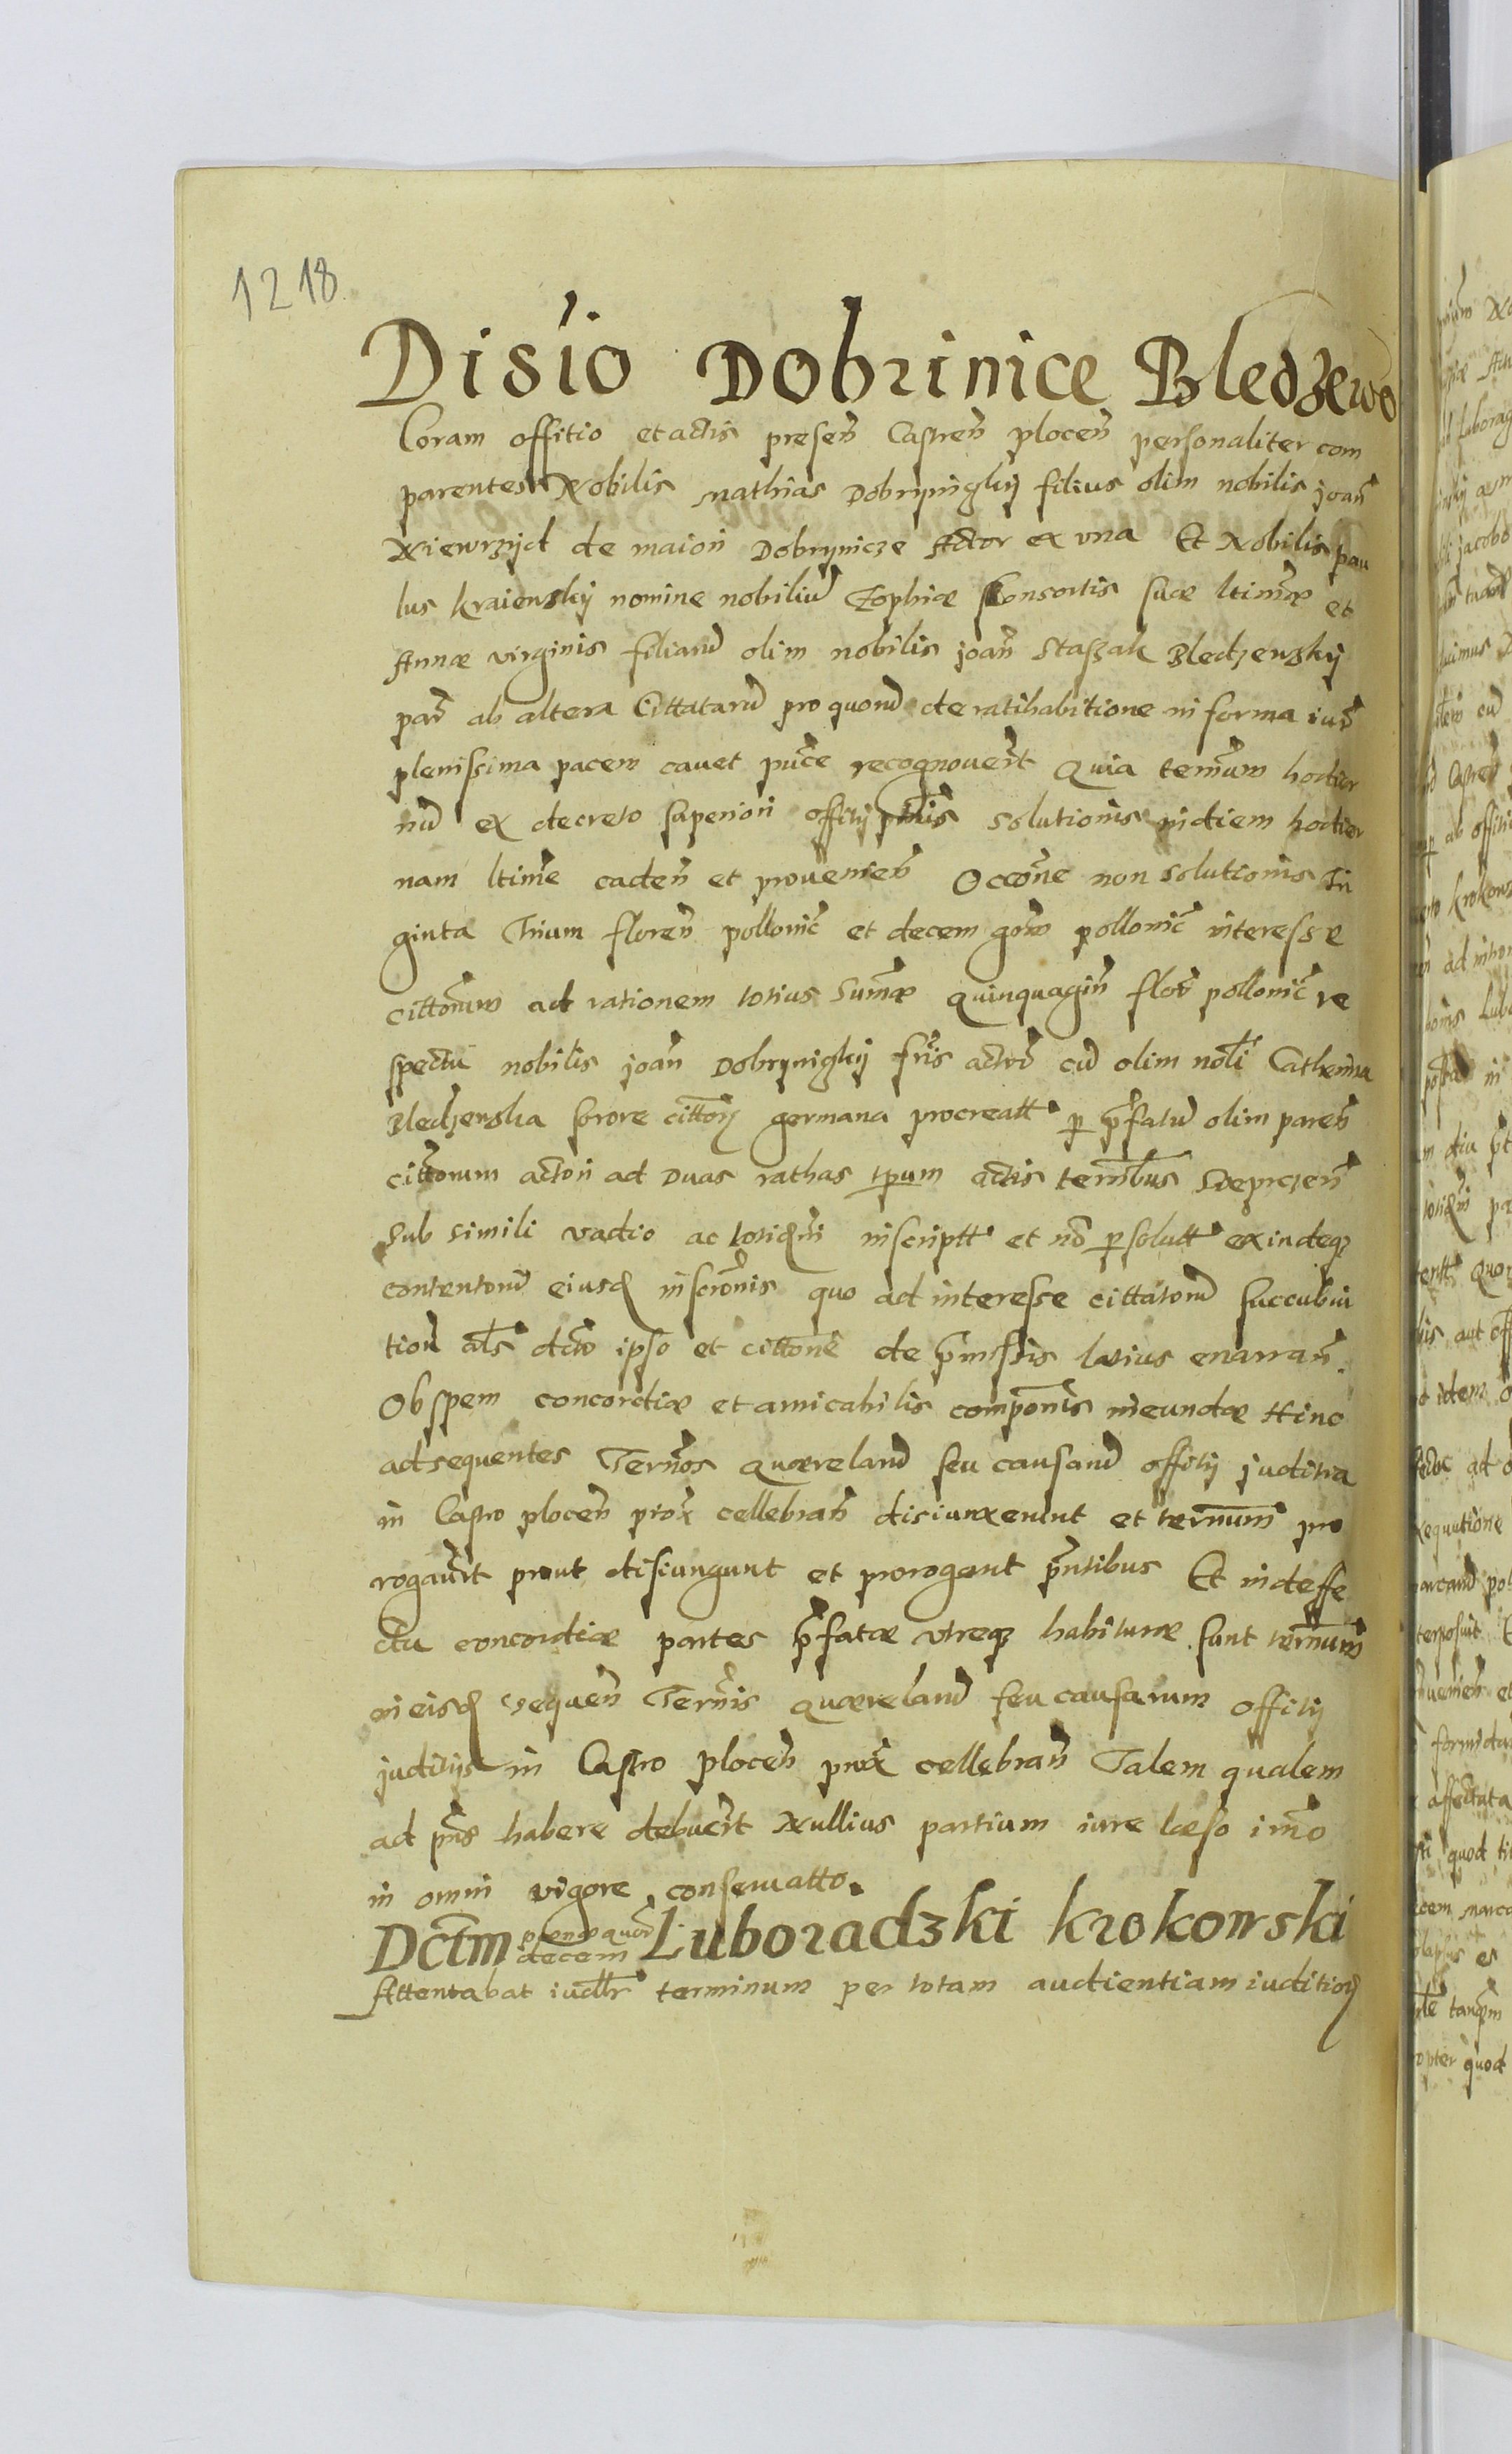 1218
Disio Dobrinice Bledzewo
Coram offitio et actis presen̄ Castren̄ plocen̄ personaliter com
parentes Nobilis Mathias Dobryniczky filius olim nobilis joan̄
Niewrzyd de maiori Dobrynicze Actor ex vna Et Nobilis pau
lus Kraiewsky nomine nobiliū Zophiæ consortis suæ ltimæ et
Annæ virginis filiarū olim nobilis joan̄ Staszak Bledzewsky
par̄ ab altera Cittatarū pro quorū de ratihabitione in forma iur̄
plenissima pacem cauet pn̄ce recognouer̄t Quia termīnum hodier
nū ex decreto superiori offitij solutionis in diem hodier
nam ltime caden̄ et prouenien̄ Occōne non solutionis Tri
ginta Trium floren̄ pollonic̄ et decem gōr̄m pollonic̄ interesse
cittōrum ad rationem totius Summæ quinquagin̄ flor̄ pollonic̄ re
spectu nobilis joan̄ Dobryniczky fris actor̄ cū olim nobli Catherina
Bledzewska sorore cittorȝ germana procreatt p p̄fatū olim paren̄
cittorum actori ad duas rathas tpum actis termībus
sub simili vadio ac totidm̄ inscriptt et nō psolutt exindeqȝ
contentorū eiusd inscrōnis quo ad interesse cittatorū succubui
tion als dcto ipso et cittōne de p̄missis latius enarran̄.
Ob spem concordiæ et amicabilis compōnis ineundæ Hinc
ad sequentes Termīos quærelarū seu causarū offitij juditia
in Castro plocen̄ prox̄ cellebran̄ disiunxerunt et termīnum pro
rogauer̄t prout disiungunt et prorogant p̄ntibus Et in deffe
ctu concordiæ partes p̄fatæ vtreqȝ habituræ sunt termīnum
in eisd sequen̄ Termīnis quærelarū seu causarum offitij
juditijs in Castro plocen̄ prox̄ cellebran̄ Talem qualem
ad pn̄s habere debuer̄t Nullius partium iure læso imo
in omni vigore conseruatto.
Dctm decem Luboradzki Krokowski
Attentabat iudlr terminum per totam audientiam iuditiorȝ